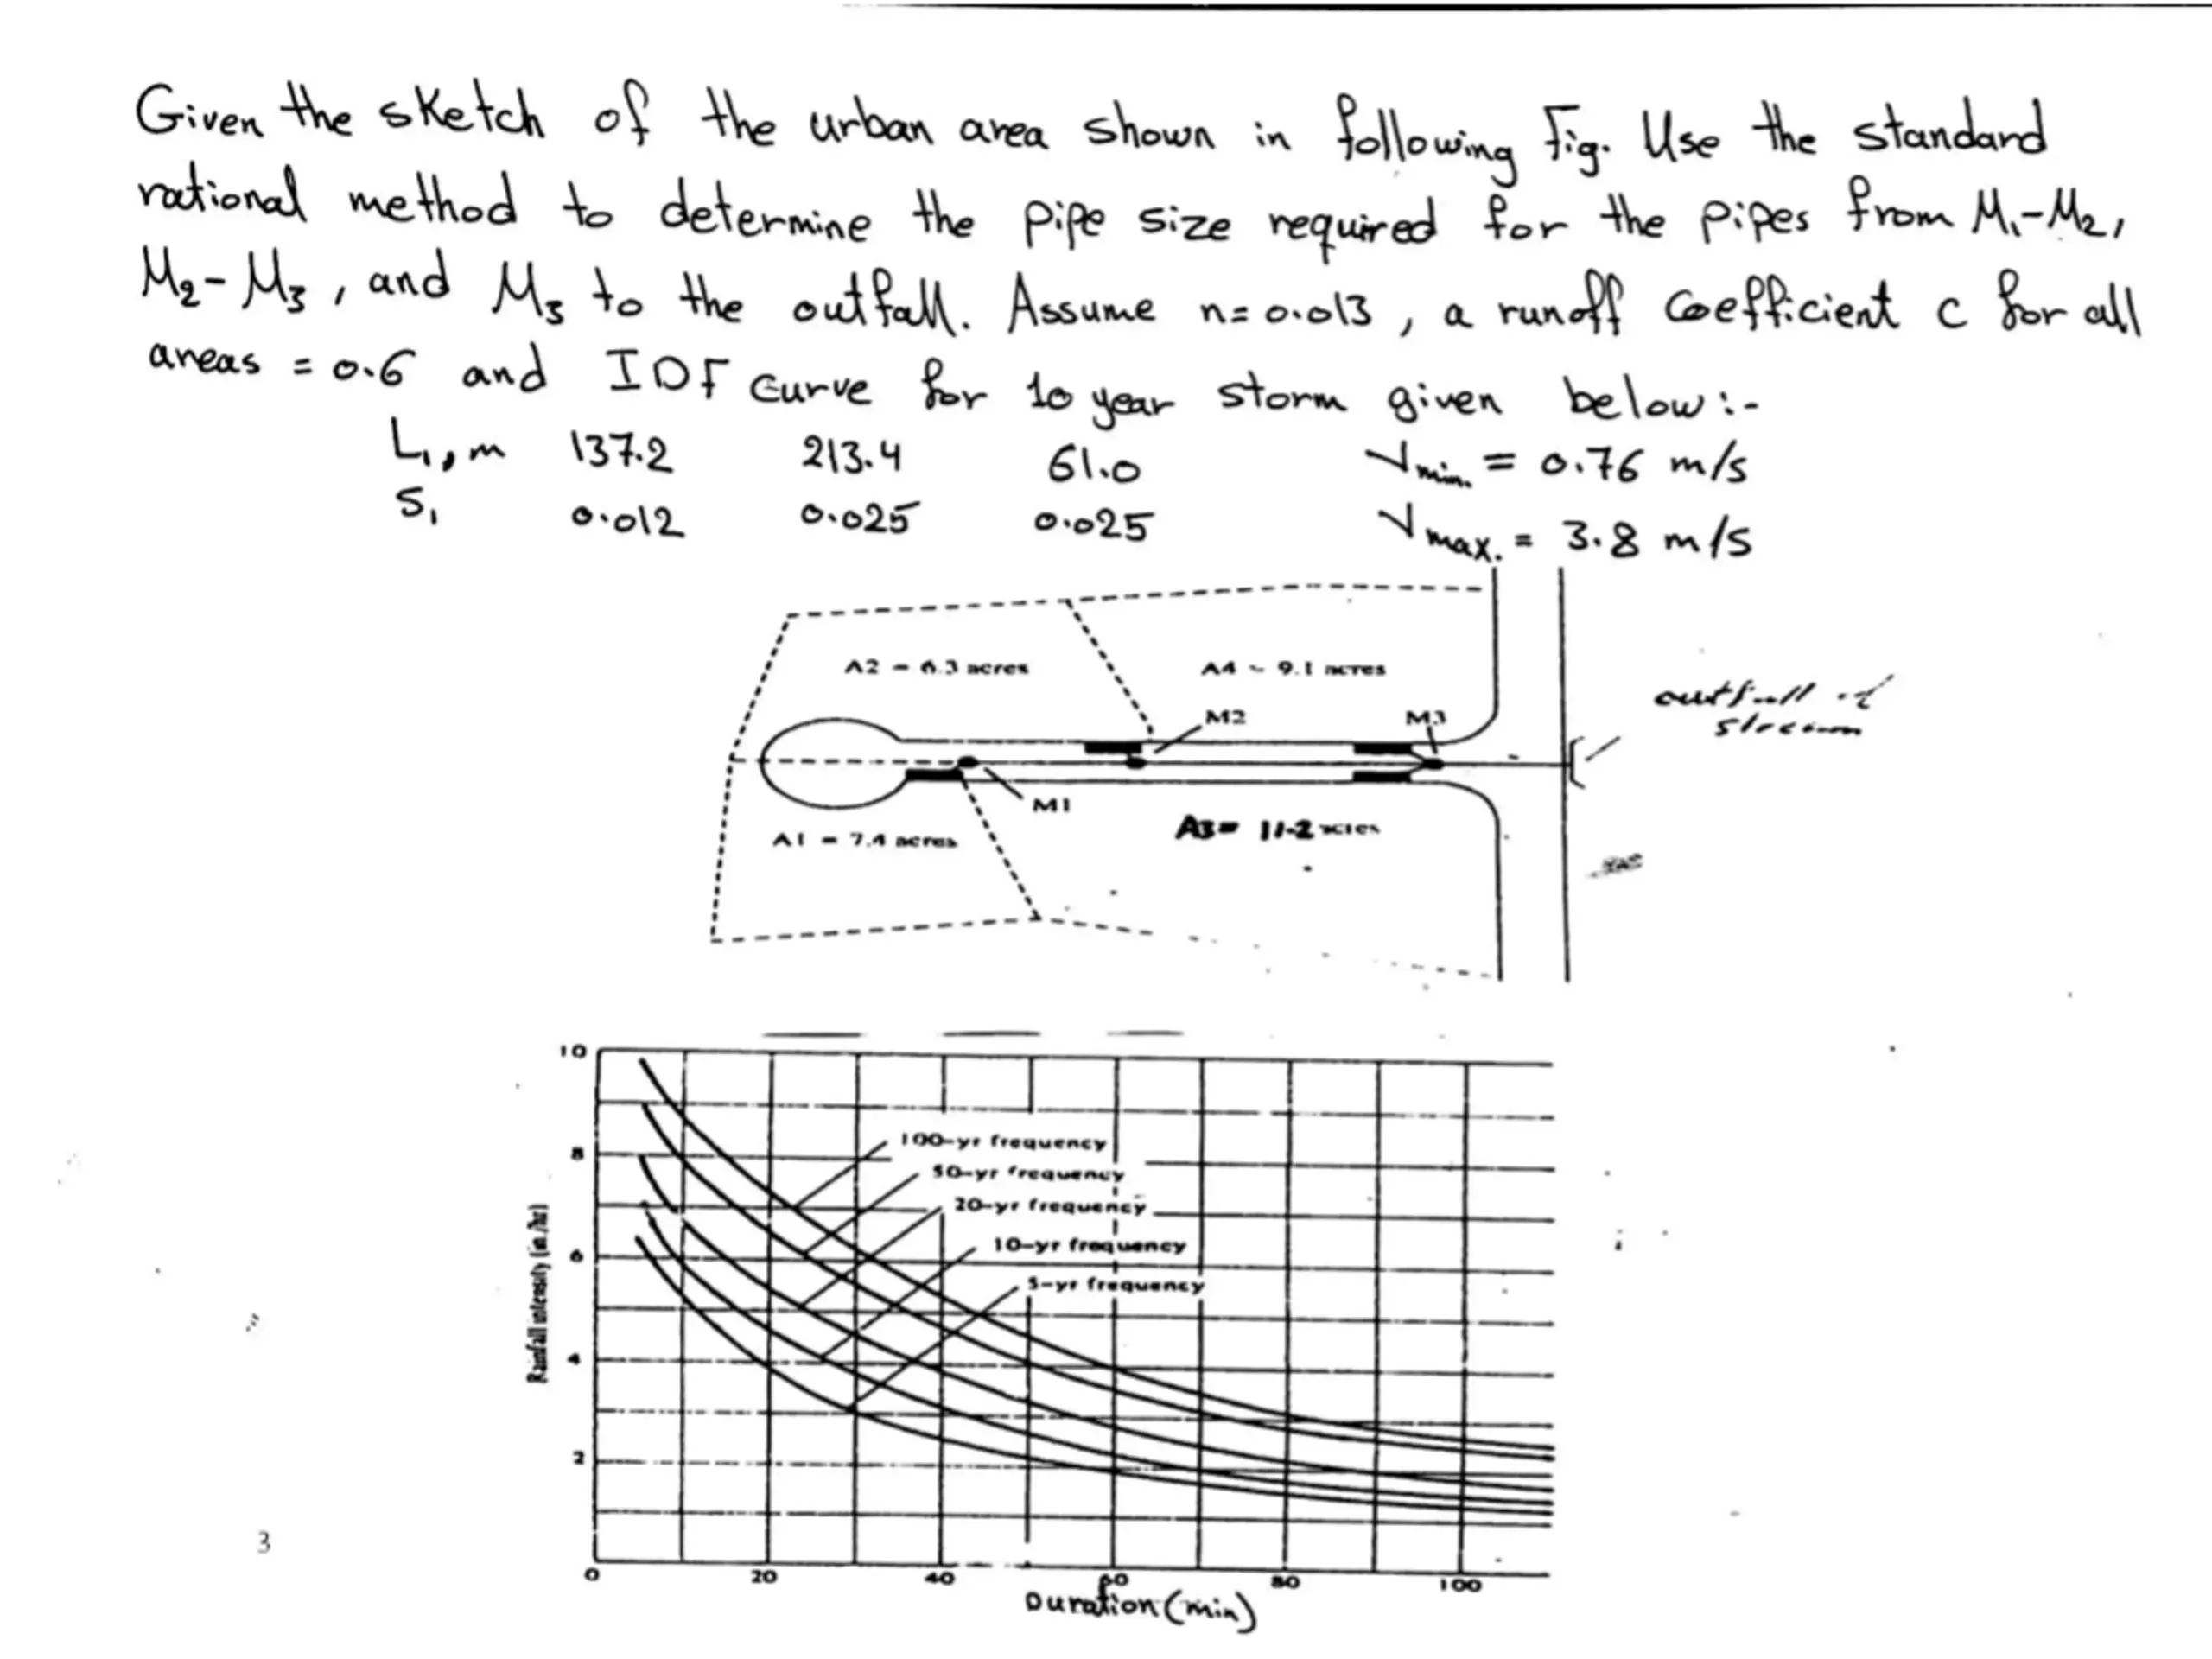 Given the sketch of the urban area shown in following Fig. Use the standard
rational method to determine the pipe size required for the pipes from M1-M2,
M2-M3, and M3 to the outfall. Assume n=0.013, a runoff coefficient c for all
areas = 0.6 and IDF curve for 10 year storm given below:-
L1, m 137.2 213.4 61.0 Vmin. = 0.76 m/s
S1 0.012 0.025 0.025 Vmax. = 3.8 m/s
A2 = 6.3 acres A4 ~ 9.1 acres
M2 M3
outfall
stream
M1
A1 = 7.4 acres
A3= 11.2 acres
10
8
6
4
2
Rainfall intensity (in/hr)
100-yr frequency
50-yr frequency
20-yr frequency
10-yr frequency
5-yr frequency
0 20 40 60 80 100
Duration (min)
3